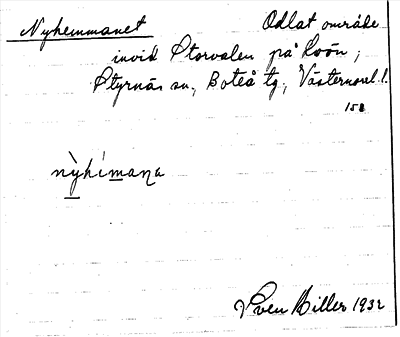 Nyhemmanet Odlat område
invid Storvalen på Loön ;
Styrnäs sn., Boteå tg., Västernorrl. l.
158
nỳhímana
Sven Biller 1932